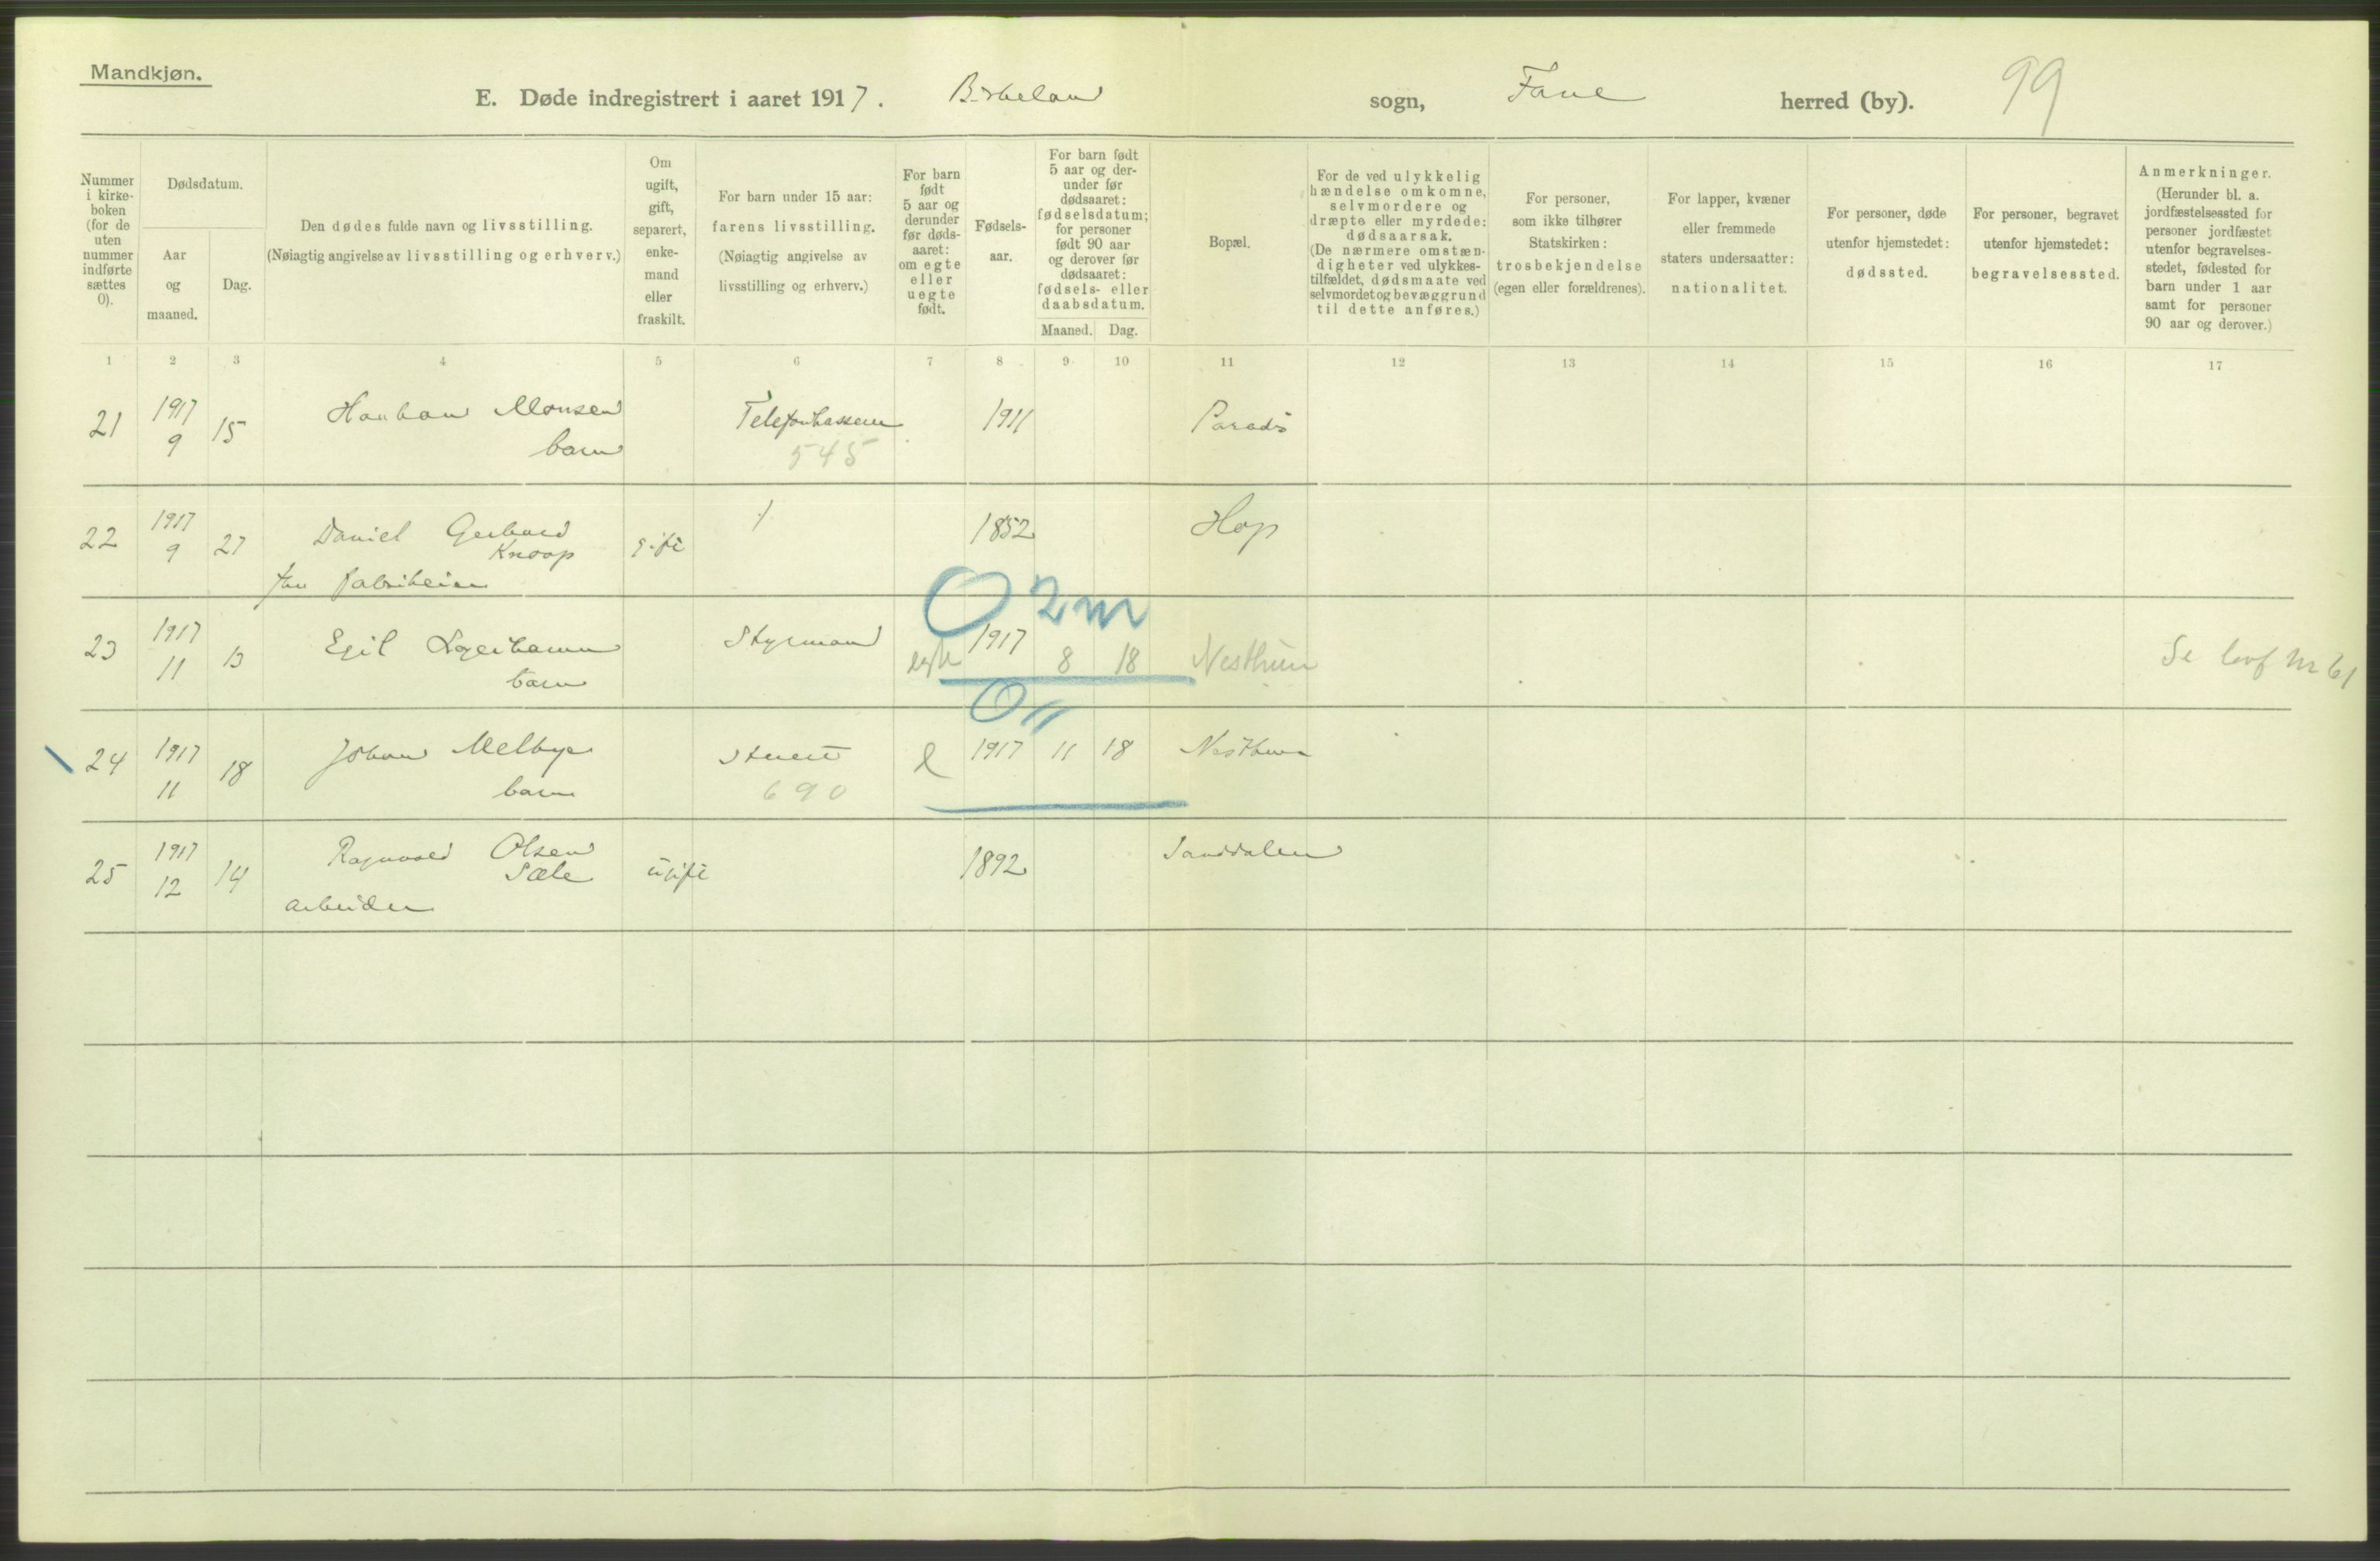 Mandkjøn.
E. Døde indregistrert i aaret 1917. Birkeland sogn, Fane herred (by). 99
Nummer i kirke- boken (for de uten nummer indførte sættes 0).
Dødsdatum.
Aar og maaned.
Dag.
Den dødes fulde navn og livsstilling.
(Nøiagtig angivelse av livsstilling og erhverv.)
Om ugift, gift, separert, enke- mand eller fraskilt.
For barn under 15 aar:
farens livsstilling.
(Nøiagtig angivelse av
livsstilling og erhverv.)
For barn født 5 aar og derunder før døds- aaret: om egte eller uegte født.
Fødsels- aar.
For barn født 5 aar og der- under før dødsaaret: fødselsdatum; for personer født 90 aar og derover før dødsaaret: fødsels- eller daabsdatum.
Maaned. Dag.
Bopæl.
For de ved ulykkelig hændelse omkomne, selvmordere og dræpte eller myrdede: dødsaarsak. (De nærmere omstæn- digheter ved ulykkes- tilfældet, dødsmaate ved selvmordet og bevæggrund til dette anføres.)
For personer, som ikke tilhører Statskirken: trosbekjendelse (egen eller forældrenes).
For lapper, kvæner eller fremmede staters undersaatter: nationalitet.
For personer, døde utenfor hjemstedet: dødssted.
For personer, begravet utenfor hjemstedet: begravelsessted.
Anmerkninger. (Herunder bl. a. jordfæstelsessted for personer jordfæstet utenfor begravelses- stedet, fødested for barn under 1 aar samt for personer 90 aar og derover.)
1 2 3 4 5 6 7 8 9 10 11 12 13 14 15 16 17
21 1917 9 15 Haakon Monsen Telefonkasserer 1911 Paradis
barn 545
22 1917 9 27 Daniel Gerhard gift 1852 Hop
Knoop
Fabrikeier
0 2m
23 1917 11 13 Egil barn Styrmand egte 1917 8 18 Nesttun Se nr 61
0
24 1917 11 18 Johan Melbye Stuert e 1917 11 18 Nesttun
barn 690
25 1917 12 14 Ragnvald Olsen ugift 1892 Sanddalen
Sæle
arbeider